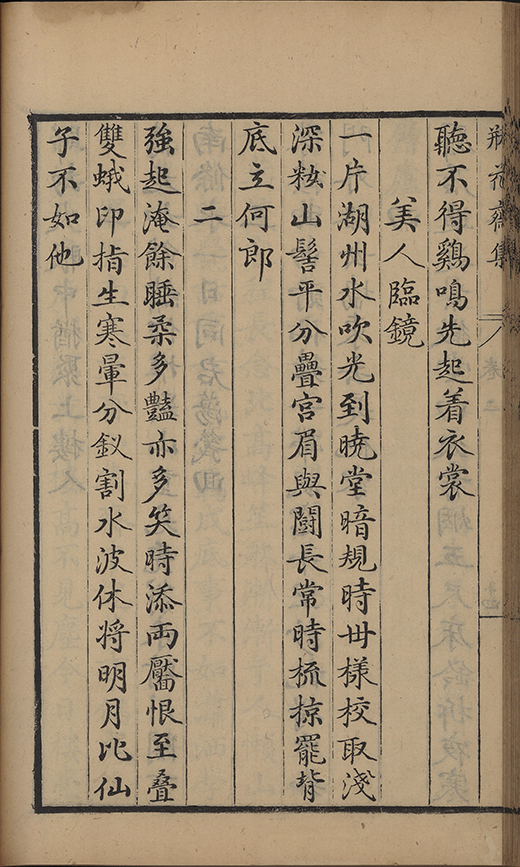 瓶花齋集
卷二
聽不得鷄鳴先起着衣裳
美人臨鏡
一片湖州水吹光到曉堂暗規時世樣校取淺
深粧山髻平分疊宮眉與鬪長常時梳掠罷背
底立何郎
二
強起淹餘睡柔多豔亦多笑時添兩靨恨至叠
雙蛾印指生寒暈分釵割水波休將明月比仙
子不如他